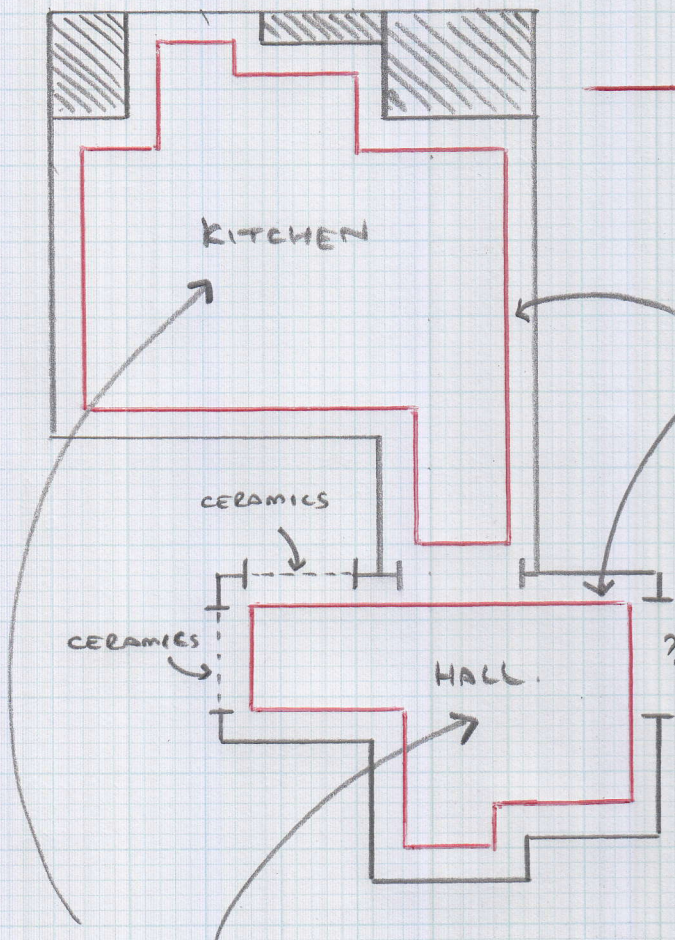 KITCHEN
CERAMICS
CERAMICS
HALL.
?